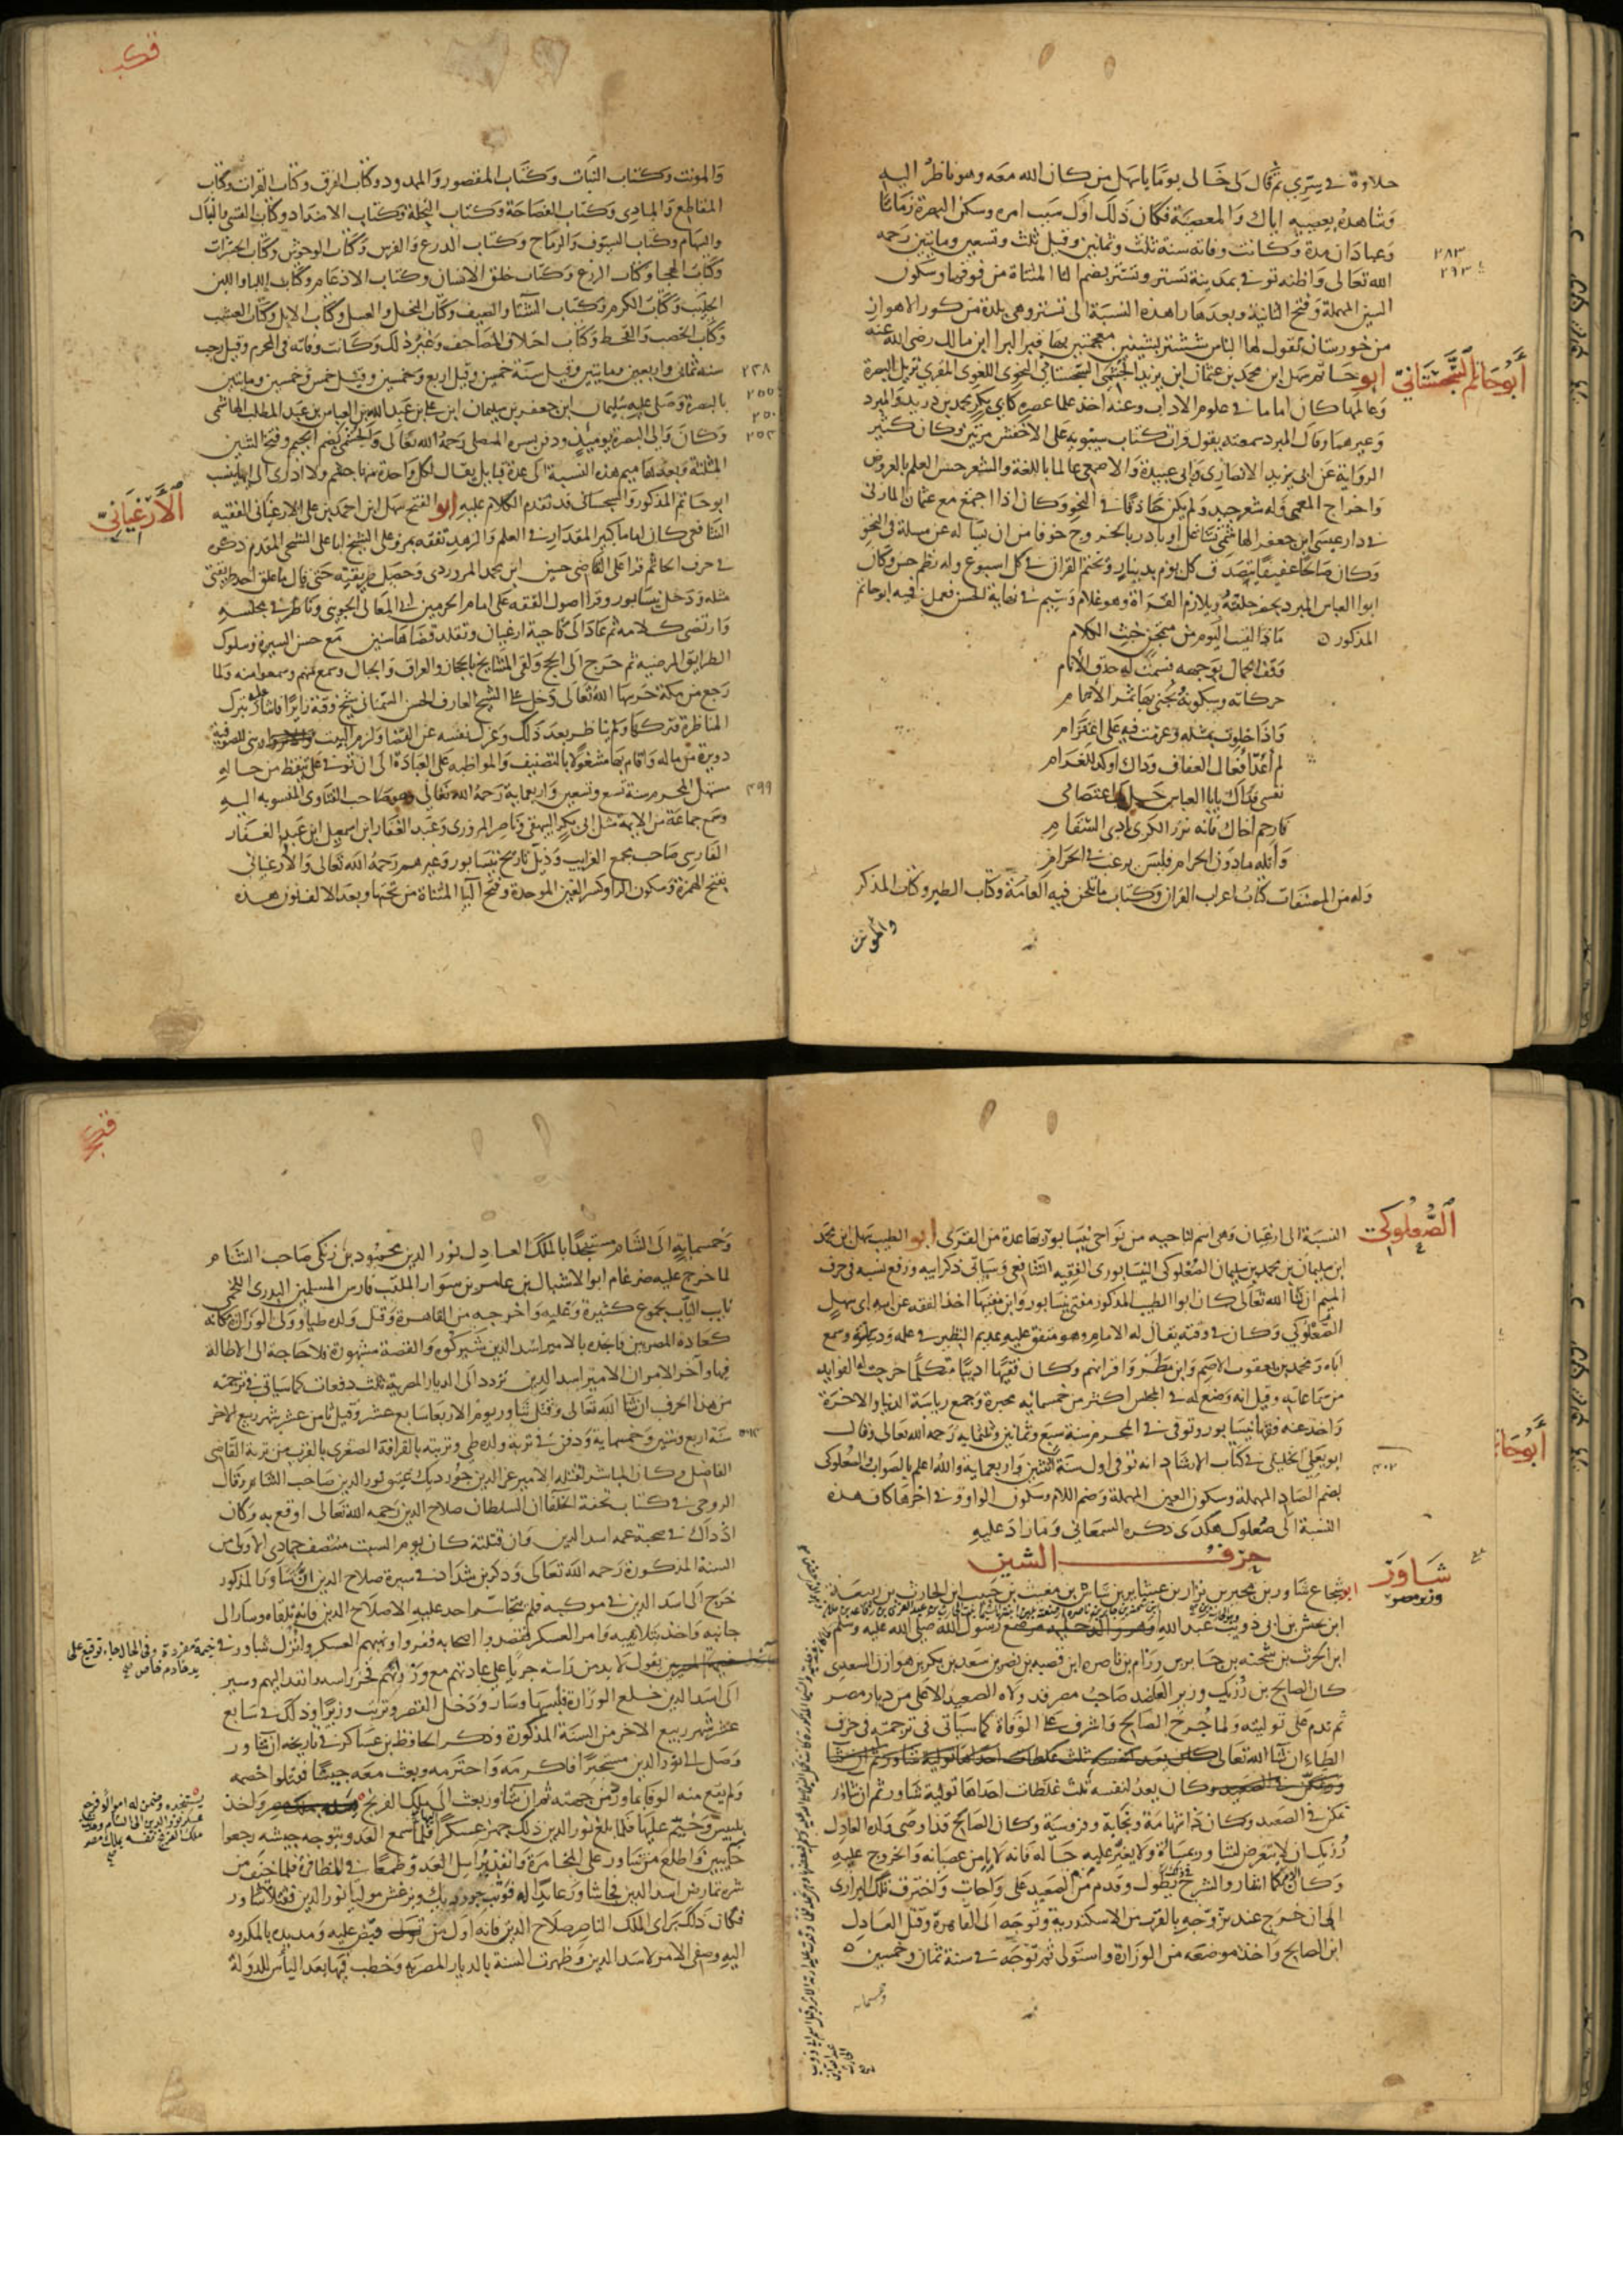 حلاوة في سري ثم قال لي خالي يوما يا سهل من كان الله معه وهو ناظر اليه
وشاهده يعصيه اياك والمعصية فكان ذلك اول سبب امره وسكن البصرة زمانا
وعبادان مدة وكانت وفاته سنة ثلث وثمانين وقيل ثلث وتسعين ومايتين رحمه
٢٨٣
٢٩٣
الله تعالى واظنه توفي بمدينة تستر وتستر بضم التا المثناة من فوقها وسكون
السين المهملة وفتح الثانية وبعدها را هذه النسبة الى تستر وهي بلدة من كور الاهواز
من خورستان يقول لها الناس ششتر بشينين معجمتين بها قبر البرا ابن مالك رضي الله عنه
أبو حاتم السجستاني
ابو حاتم سهل ابن محمد بن عثمان ابن يزيد الجشمي السجستاني النحوي اللغوي المقري نزيل البصرة
وعالمها كان اماما في علوم الاداب وعنه اخذ علما عصره كابي بكر محمد بن دريد والمبرد
وغيرهما وقال المبرد سمعته يقول قرات كتاب سيبويه على الاخفش مرتين وكان كثير
الرواية عن ابي يزيد الانصاري وابي عبيدة والاصمعي عالما باللغة والشعر حسن العلم بالعروض
واخراج المعمى وله شعر جيد ولم يكن حاذقا في النحو وكان اذا اجتمع مع عثمان المازني
في دار عيسى ابن جعفر الهاشمي تشاغل او بادر بالخروج خوفا من ان يساله عن مسلة في النحو
وكان صالحا عفيفا يتصدق كل يوم بدينار ويختم القران في كل اسبوع وله نظم حسن وكان
ابوا العباس المبرد يحضر حلقته ويلازم القراة وهو غلام وسيم في نهاية الحسن فعمل فيه ابو حاتم
المذكور ماذا لقيت اليوم من متمجن خنث الكلام
وقف الجمال بوجهه فسمت له حدق الأنام
حركاته وسكونه يجنى بها ثمر الأثام
واذا خلوت بمثله وعزمت فيه على اعتزام
لم أعد أفعال العفاف وذاك اوكد للغرام
نفسي فداك يابا العباس حل بك اعتصامى
فارحم اخاك فانه نزر الكرى بادي السقام
وانله ما دون الحرام فليس يرغب في الحرام
وله من المصنفات كتاب اعراب القران وكتاب ما تلحن فيه العامة وكتاب الطير وكتاب المذكر
والمونث
والمونث وكتاب النبات وكتاب المقصور والممدود وكتاب الفرق وكتاب القرات وكتاب
المقاطع والمبادي وكتاب الفصاحة وكتاب النخلة وكتاب الاضداد وكتاب القسي والنبال
والسهام وكتاب السيوف والرماح وكتاب الدرع والفرس وكتاب الوحوش وكتاب الحشرات
وكتاب الهجا وكتاب الزرع وكتاب خلق الانسان وكتاب الادغام وكتاب اللبا واللبن
الحليب وكتاب الكرم وكتاب الشتا والصيف وكتاب النحل والعسل وكتاب الابل وكتاب العشب
وكتاب الخصب والقحط وكتاب اختلاف المصاحف وغير ذلك وكانت وفاته في المحرم وقيل رجب
سنة ثمان واربعين ومايتين وقيل سنة خمسين وقيل اربع وخمسين وقيل خمس وخمسين ومايتين
٢٣٨
٢٥٥
٢٥٠
٢٥٣
بالبصرة وصلى عليه سليمان ابن جعفر بن سليمان ابن علي بن عبد الله بن العباس بن عبد المطلب الهاشمي
وكان والى البصرة يوميذ ودفن بسرة المصلى رحمه الله تعالى والجشمي بضم الجيم وفتح الشين
المثلثة وبعدها ميم هذه النسبة الى عدة قبايل يقال لكل واحدة منها جشم ولا ادري الى ايها ينسب
الأرغياني
ابو حاتم المذكور والسجستاني قد تقدم الكلام عليه ابو الفتح سهل ابن احمد بن علي الارغياني الفقيه
الشافعي كان اماما كبير المقدار في العلم والزهد تفقه بمرو على الشيخ ابا علي السنجي المقدم ذكره
في حرف الحا ثم قرا على القاضي حسين ابن محمد المروردي وحصل طريقته حتى قال ما علق احد طريقتي
مثله ودخل نيسابور وقرا اصول الفقه على امام الحرمين ابي المعالي الجويني وناظر في مجلسه
وارتضى كلامه ثم عاد الى ناحية ارغيان وتقلد قضاها سنين مع حسن السيرة وسلوك
الطرايق المرضيه ثم خرج الى الحج ولقي المشايخ بالحجاز والعراق والجبال وسمع منهم وسمعوا منه ولما
رجع من مكة حرسها الله تعالى دخل على الشيخ العارف الحسن السمناني شيخ وقته زايرا فاشار عليه بترك
المناظرة فتركها ولم يناظر بعد ذلك وعزل نفسه عن القضا ولزم البيت وبنى للصوفية
دويرة من ماله واقام بها مشغولا بالتصنيف والمواظبه على العبادة الى ان توفي على تيقظ من حاله
٣٩٩
مستهل المحرم سنة تسع وتسعين واربعماية رحمه الله تعالى وهو صاحب الفتاوى المنسوبه اليه
وسمع جماعة من الايمة مثل ابي بكر البيهقي وناصر المروزى وعبد الغفار ابن اسمعيل ابن عبد الغفار
الفارسي صاحب مجمع الغرايب وذيل تاريخ نيسابور وغيرهم رحمه الله تعالى والأرغياني
بفتح الهمزة وسكون الرا وكسر الغين الموحدة وفتح اليا المثناة من تحتها وبعد الالف نون هذه
الصعلوكي
النسبة الى ارغيان وهي اسم لناحيه من نواحي نيسابور بها عدة من القرى ابو الطيب سهل ابن محمد
ابن سليمان بن محمد بن سليمان الصعلوكي النيسابوري الفقيه الشافعي وسياتي ذكر ابيه ورفع نسبه في حرف
الميم ان شا الله تعالى كان ابوا الطيب المذكور مفتي نيسابور وابن مفتيها اخذ الفقه عن ابيه ابي سهل
الصعلوكي وكان في وقته يقال له الامام وهو متفق عليه عديم النظير في علمه وديانته وسمع
اباه ومحمد بن يعقوب الاصم وابن مطر واقرانهم وكان فقيها اديبا متكلما خرجت له الفوايد
من سماعاته وقيل انه وضع له في المجلس اكثر من خمسمايه محبرة وجمع رياسة الدنيا والاخرة
واخذ عنه فقها نيسابور وتوفي في المحرم سنة سبع وثمانين وثلثمايه رحمه الله تعالى وقال
ابو يعلى الخليلي في كتاب الارشاد انه توفي اول سنة اثنتين واربعماية والله اعلم بالصواب والصعلوكى
بضم الصاد المهملة وسكون العين المهملة وضم اللام وسكون الواو وفي اخرها كاف هذه
النسبة الى صعلوك هكذى ذكره السمعاني وما زاد عليه
حرف الشين
شاور
وزير مصر
ابو شجاع شاور بن مجير بن نزار بن عشاير بن شاش بن مغيث بن حبيب ابن الحارث بن ربيعة
ابن الحرث بن شحنه بن جابر بن رزام بن ناصره ابن قصيه بن نصر بن سعد بن بكر بن هوازن السعدي
كان الصالح بن رزيك وزير العاضد صاحب مصر قد ولاه الصعيد الاعلى من ديار مصر
ثم ندم على توليته ولما جرح الصالح واشرف على الوفاة كما سياتي في ترجمته في حرف
الطا ان شا الله تعالى
وكان يعد لنفسه ثلث غلطات احداها تولية شاور ثم ان شاور
تمكن في الصعيد وكان ذا شهامة ونجابة وفروسية وكان الصالح قد اوصى ولده العادل
رزيك ان لا يتعرض لشاور بمساة ولا يغير عليه حاله فانه لا يامن عصيانه والخروج عليه
الى ان خرج عند تروجه بالقرب من الاسكندرية وتوجه الى القاهرة وقتل العادل
ابن الصالح واخذ موضعه من الوزارة واستولى ثم توجه في سنة ثمان وخمسين
وخمسمايه
وخمسماية الى الشام مستنجدا بالملك العادل نور الدين محمود بن زنكي صاحب الشام
لما خرج عليه ضرغام ابو الاشبال بن عامر بن سوار الملقب فارس المسلمين البدري اللخمي
نايب الباب بجموع كثيرة وغلبه واخرجه من القاهرة وقتل ولده طيا وولى الوزارة مكانه
كعادة المصريين فانجده بالامير اسد الدين شيركوه والقصة مشهورة فلا حاجة الى الاطالة
فيها وآخر الامر ان الامير اسد الدين تردد الى الديار المصرية ثلث دفعات كما سياتي في ترجمته
من هذا الحرف ان شا الله تعالى وقتل شاور يوم الاربعا سابع عشر وقيل ثامن عشر شهر ربيع الاخر
سنة اربع وستين وخمسماية ودفن في تربة ولده طي وتربته بالقرافة الصغرى بالقرب من تربة القاضي
الفاضل وكان المباشر لقتله الامير عز الدين جورديك عتيق نور الدين صاحب الشام وقال
الروحي في كتاب تحفة الخلفا ان السلطان صلاح الدين رحمه الله تعالى اوقع به وكان
اذ ذاك في صحبة عمه اسد الدين وان قتلته كان يوم السبت منتصف جمادى الاولى من
السنة المذكورة رحمه الله تعالى وذكر بن شداد في سيرة صلاح الدين ان شاور المذكور
خرج الى اسد الدين في موكبه فلم يتجاسر احد عليه الا صلاح الدين فانه تلقاه وسار الى
جانبه واخذ بتلابيبه وامر العسكر بقصد اصحابه ففروا ونهبهم العسكر وانزل شاور في
خيمة مفردة وفي الحال جاء توقيع على
يد خادم خاص
يقول لا بد من راسه جريا على عادتهم مع وزرائهم فحز راسه وانفذ اليهم وسير
الى اسد الدين خلع الوزارة فلبسها وسار ودخل القصر وترتب وزيرا وذلك في سابع
عشر شهر ربيع الاخر من السنة المذكورة وذكر الحافظ بن عساكر في تاريخه ان شاور
وصل الى نور الدين مستجيرا فاكرمه واحترمه وبعث معه جيشا فقتلوا خصمه
ولم يقع منه الوفا بما ورد من جهته ثم ان شاور بعث الى ملك الفرنج
بلبيس وخيم عليها فلما بلغ نور الدين ذلك جهز عسكرا فلما سمع العدو بتوجه جيشه رجعوا
خايبين واطلع من شاور على المخامرة وانفذ يراسل العدو طمعا في المظافرة فلما خيف من
شره تمارض اسد الدين فجا شاور عايدا له فوثب جورديك وبزغش موليا نور الدين فقتلا شاور
فكان ذلك براى الملك الناصر صلاح الدين فانه اول من قبض عليه ومد يده بالمكروه
اليه وصفى الامر لاسد الدين وظهرت السنة بالديار المصرية وخطب فيها بعد الياس للدولة